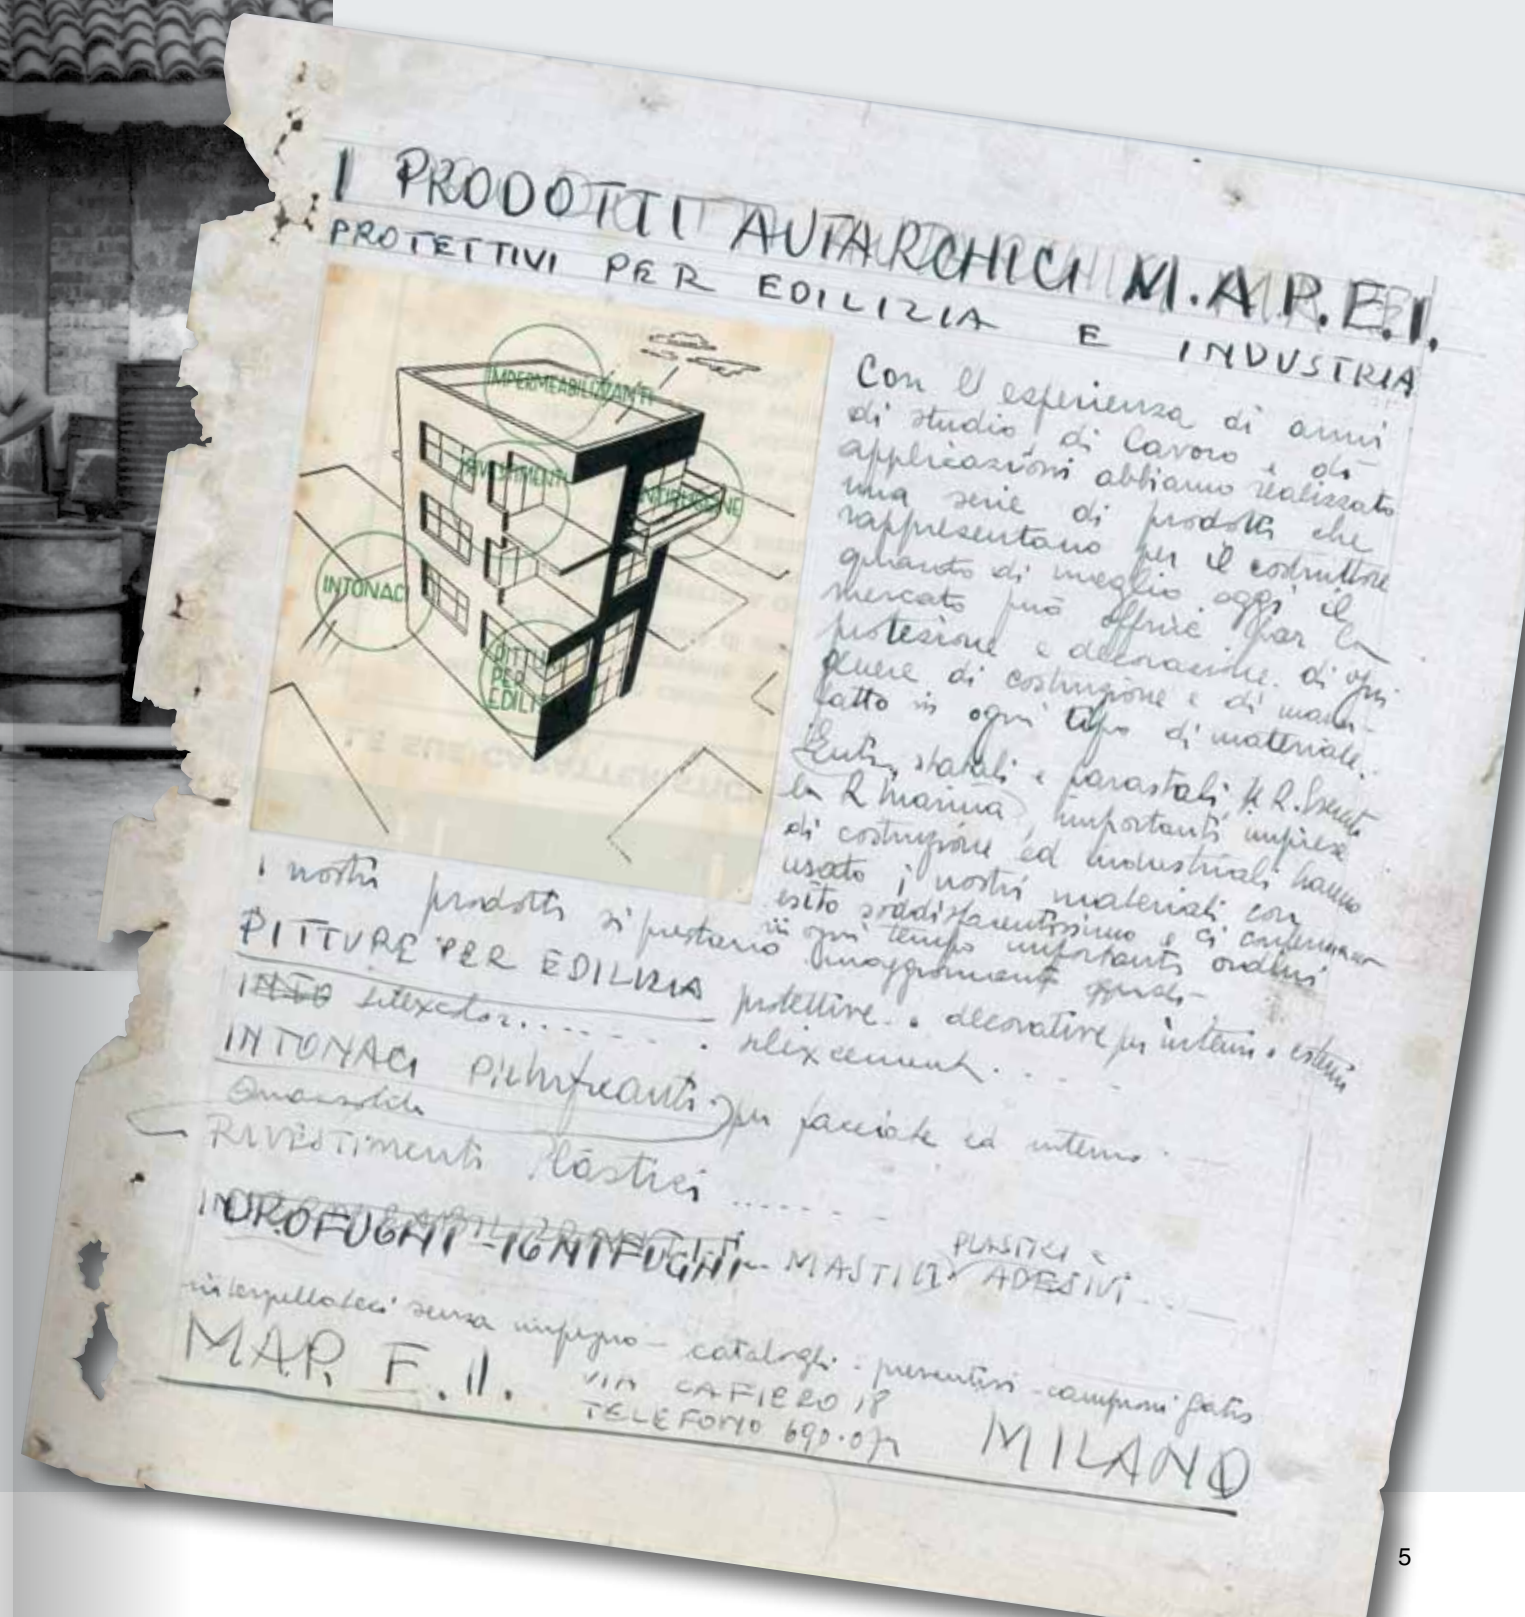 I PRODOTTI AUTARCHICI M.A.P.E.I.
PROTETTIVI PER EDILIZIA E INDUSTRIA
IMPERMEABILIZZANTI
RIVESTIMENTI
ANTIRUGGINE
INTONACI
PITTURE
PER
EDILIZIA
Con l'esperienza di anni
di studio di lavoro e di
applicazioni abbiamo realizzato
una serie di prodotti che
rappresentano per il costruttore
quanto di meglio oggi il
mercato può offrire per la
protezione e decorazione di ogni
genere di costruzione e di manu-
fatto in ogni tipo di materiale.
Enti statali e parastatali, il R. Esercito
la R Marina, importanti imprese
di costruzione ed industriali hanno
usato i nostri materiali con
esito soddisfacentissimo e ci confermano
in ogni tempo importanti ordini
I nostri prodotti si prestano
PITTURE PER EDILIZIA protettive e decorative per interni e esterni
INTO silexcolor....... silexcement....
INTONACI Pietrificanti per facciate ed interno
RIVESTIMENTI Plastici ........
IMPERMEABILIZZANTI
IDROFUGHI - IGNIFUGHI - MASTICI ADESIVI...
PLASTICI e
interpellateci senza impegno - cataloghi - preventivi - campioni gratis
MAP. E. I.
VIA CAFIERO 18
TELEFONO 690.
MILANO
5